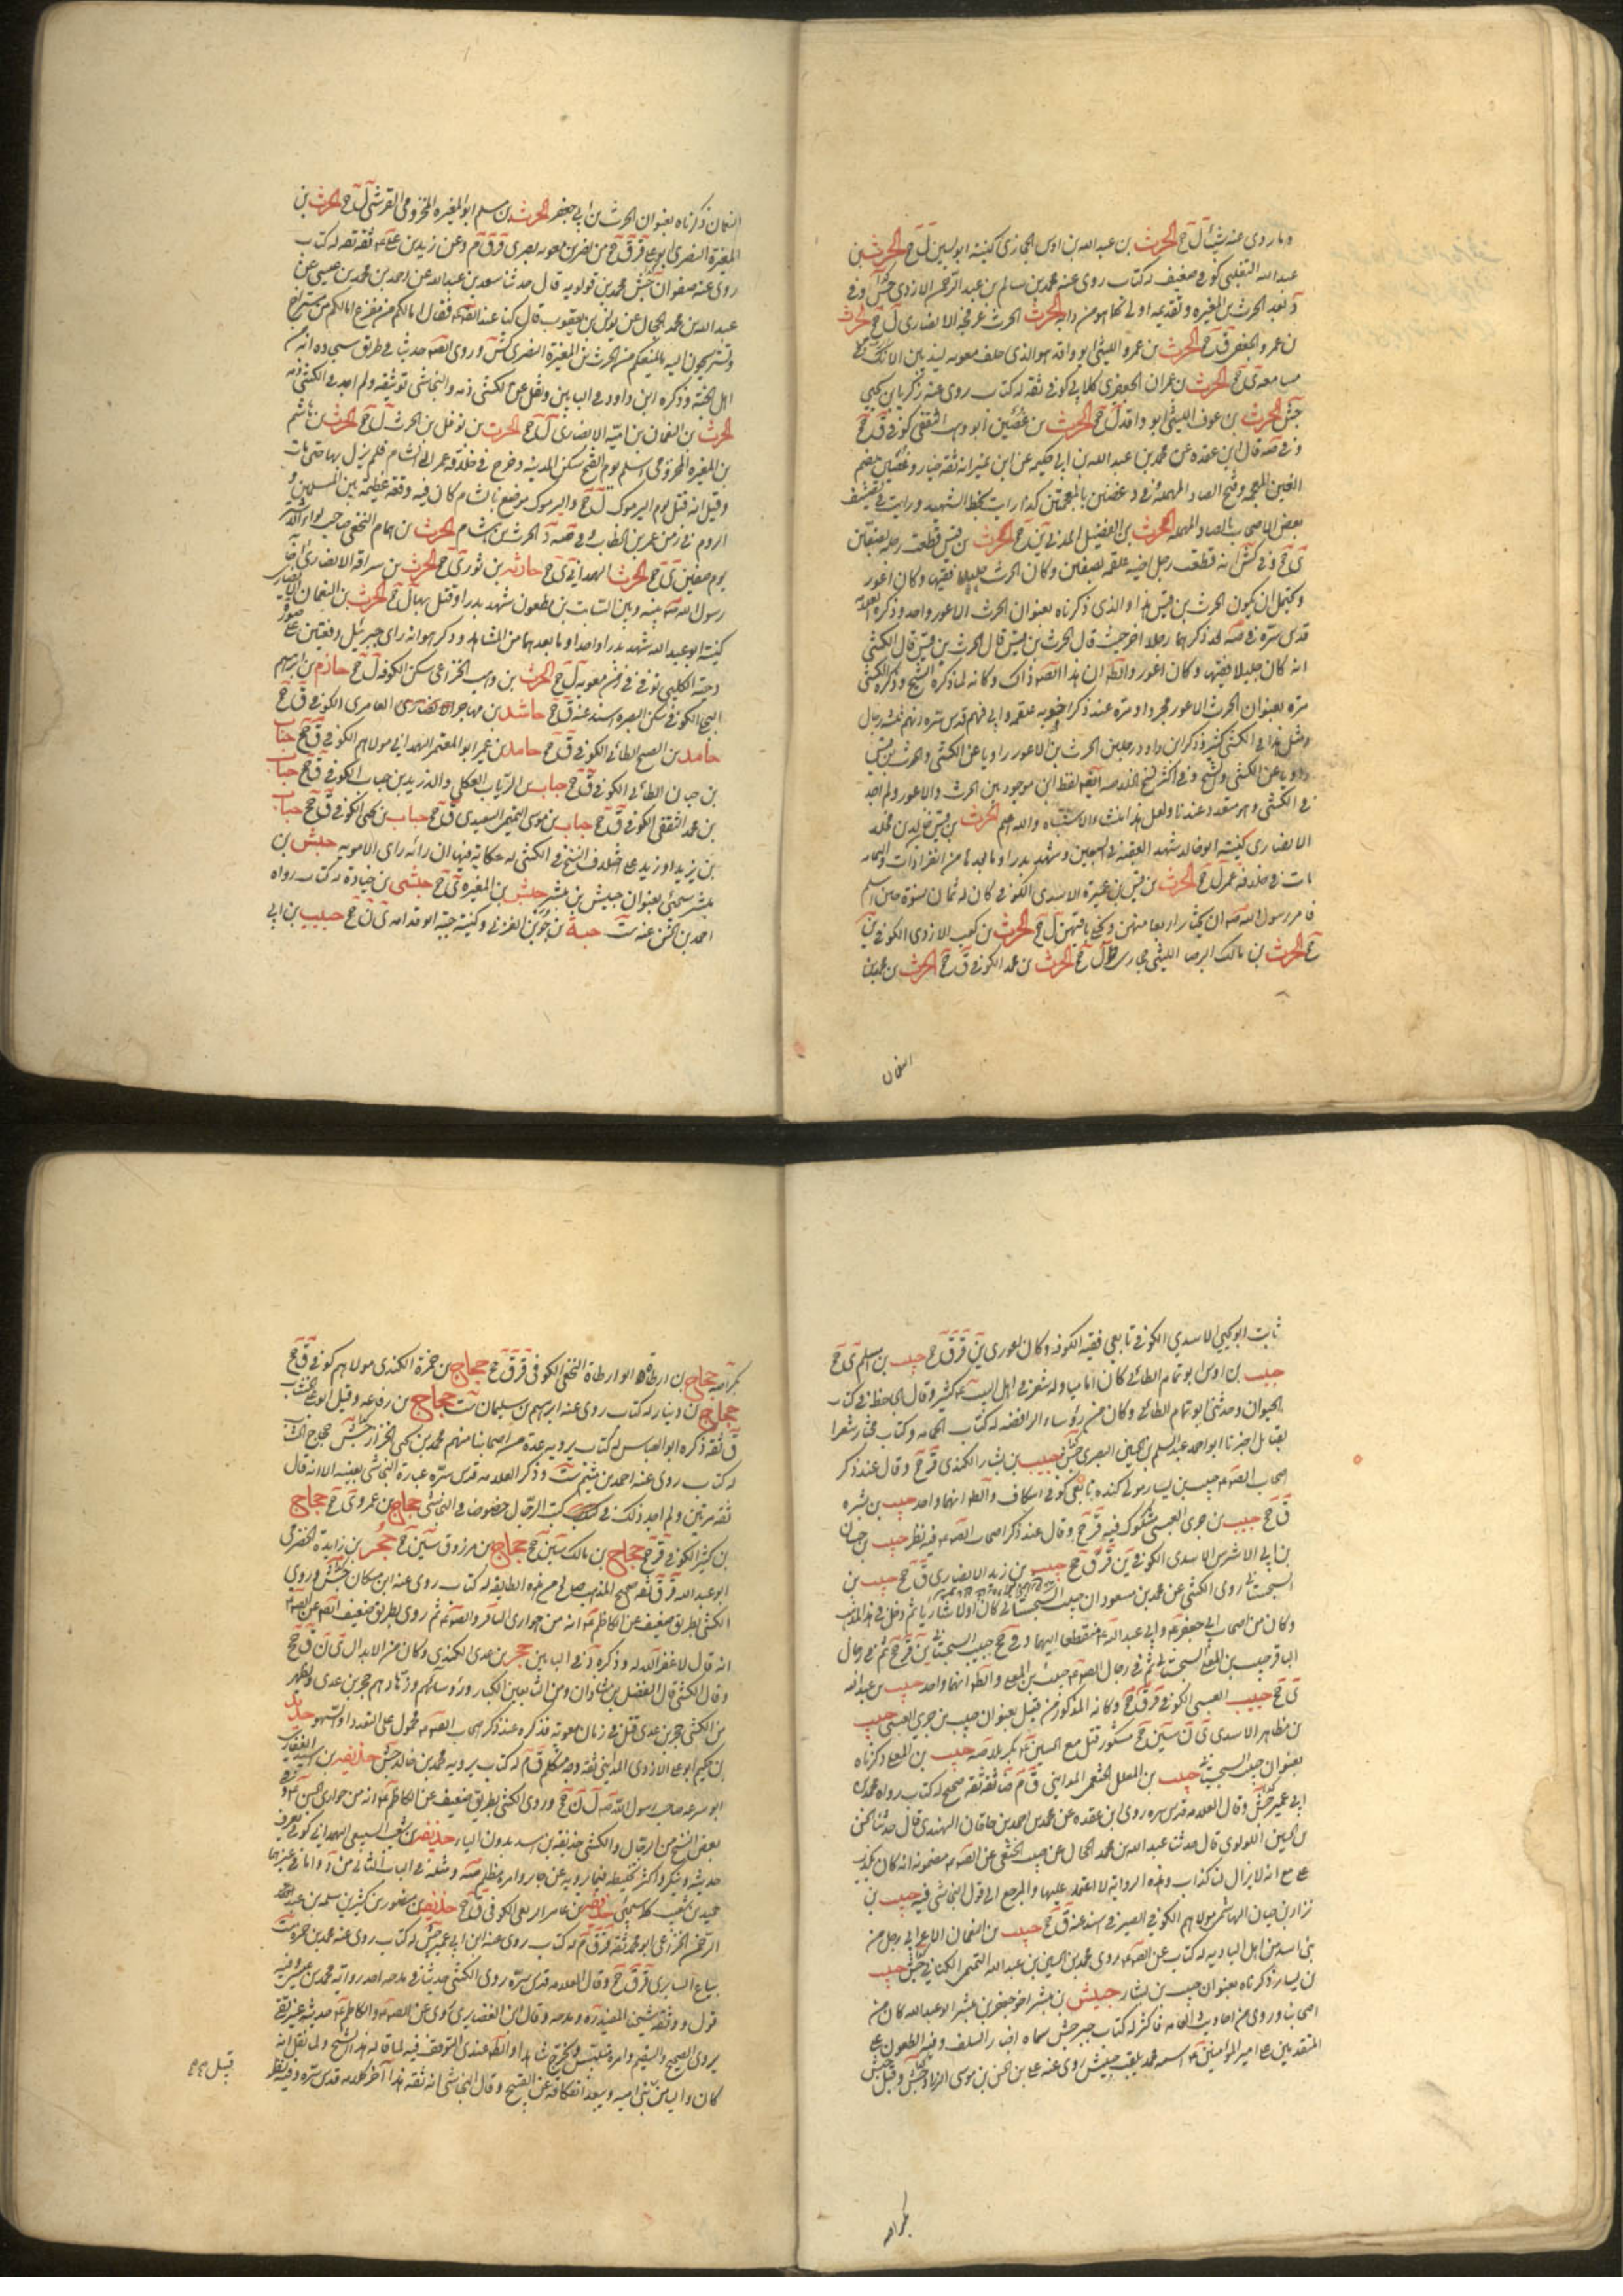 وما روى عنه شيئا ل ج الحرث بن عبد الله بن اوس الحجازى كنيته ل ج الحرث بن
عبد الله التغلبى كوفى ضعيف له كتاب روى عنه محمد بن سالم بن عبد الرحمن الازدى جش
الحرث بن المغيره وتقديمه اولى كما هو من دابه الحرث الحرث بن عرفجه الانصارى ل ج الحرث
بن عمرو الجعفى ق ج الحرث بن عمرو الليثى ابو واقد هو الذى حلف معويه
ى ج الحرث بن عمران الجعفرى كلابى كوفى ثقه له كتاب روى عنه زكريا بن يحيى
جش الحرث بن عوف الليثى ابو واقد ل ج الحرث بن غصين ابو وهب الثقفى كوفى ق ج
وفى صه قال ابن عقده عن محمد بن عبد الله بن ابى حكيمه عن ابن نمير انه ثقه خيار وغصين بضم
الغين المعجمه وفتح الصاد المهمله وفى د غضين بالمعجمتين كذا رايت بخط الشهيد ورايت فى تصنيف
بعض الاصحاب بالصاد المهمله الحرث بن الفضيل المدنى ين ج الحرث بن قيس قطعت رجله بصفين
ى ج وفى كش انه قطعت رجل اخيه علقمه بصفين وكان الحرث جليلا فقيها وكان اعور
ويحتمل ان يكون الحرث بن قيس هذا والذى ذكرناه بعنوان الحرث الاعور واحد وذكره العلامه
قدس سره فى صه بعد ذكرهما رجلا اخر حيث قال الحرث بن قيس قال الحرث بن قيس قال الكشى
انه كان جليلا فقيها وكان اعور والظ ان هذا ذاك وكانه لما ذكره الشيخ وذكره الكشى
مره بعنوان الحرث الاعور مجردا ومره عند ذكر اخويه علقمه وابى فهم قدس سره انهم ثلثه رجال
ومثل هذا فى الكشى كثير وذكر ابن داود رجلين الحرث بن الاعور راويا عن الكشى والحرث بن قيس
راويا عن الكشى والشيخ وفى اكثر نسخ الخلاصه ايضا لفظ ابن موجود بين الحرث والاعور ولم اجد
فى الكشى وهو متعدد عندنا ولعل هذا منشا والاشتباه والله اعلم الحرث بن قيس خالد بن مخلد
الانصارى كنيته ابو خالد شهد العقبه فى السبعين وشهد بدرا وما بعدها من الغزوات واليمامه
مات فى خلافه عمر ل ج الحرث بن قيس بن عميرة الاسدى الكوفى كان له ثمان نسوة حين اسلم
فامر رسول الله صه ان يختار اربعا منهن ويخلى باقيهن ل ج الحرث بن كعب الازدى الكوفى ين
ج الحرث بن مالك البرصا الليثى حجازى ل ج الحرث بن محمد الكوفى ق ج الحرث بن محمد بن
النعمان
النعمان ذكرناه بعنوان الحرث بن ابى جعفر الحرث بن مسلم ابو المغيره المخزومى القرشى ل ج الحرث بن
المغيرة النصرى ابو على قر ق ج من نصر بن معويه بصرى قر ق م وعن زيد بن على ثقه ثقه له كتاب
روى عنه صفوان جش محمد بن قولويه قال حدثنا سعد بن عبد الله عن احمد بن محمد بن عيسى عن
عبد الله بن محمد الحجال عن يونس بن يعقوب قال كنا عند الصه فقال اما لكم من مفزع اما لكم من مستراح
وتستريحون اليه ما يمنعكم من الحرث بن المغيرة النصرى كش وروى الصه حديثا فى طريقه سجاده انه من
اهل الجنة وذكره ابن داود فى البابين ونقل عن الكشى ذمه والنجاشى توثيقه ولم اجد فى الكشى ذمه
الحرث بن النعمان بن امية الانصارى ل ج الحرث بن نوفل بن الحرث ل ج الحرث بن هاشم
بن المغيره المخزومى اسلم يوم الفتح سكن المدينه وخرج فى خلافه عمر الى الشام فلم يزل بها حتى مات
وقيل انه قتل يوم اليرموك ل ج واليرموك موضع بالشام كان فيه وقعه عظيمه بين المسلمين و
الروم فى زمن عمر بن الخطاب وفى صه د الحرث بن هشام الحرث بن همام النخعى صاحب لواء الاشتر
يوم صفين ى ج الحرث الهمدانى ى ج حارثه بن ثور ى ج الحرث بن سراقه الانصارى
رسول الله صه بينه وبين السائب بن مظعون شهد بدرا وقتل بها ل ج الحرث بن النعمان الانصارى
كنيته ابو عبد الله شهد بدرا واحدا وما بعدهما من المشاهد وذكر هو انه راى جبرئيل دفعتين على صورة
دحية الكلبى توفى فى زمن معويه ل ج الحرث بن وهب الخزاعى سكن الكوفه ل ج حازم بن ابراهيم
البجلى الكوفى سكن البصره اسند عنه ق ج حاشد بن مهاجر العامرى الكوفى ق ج
حامد بن الصبيح الطائى الكوفى ق ج حامد بن عمير ابو المعتمر الهمدانى مولاهم الكوفى ق ج حباب
بن حيان الطائى الكوفى ق ج حباب بن الرياب العكلى والد زيد بن حباب الكوفى ق ج حباب
بن محمد الثقفى الكوفى ق ج حباب بن موسى التميمى السعيدى ق ج حباب بن يحيى الكوفى ق ج حباب
بن يزيد او زيد على اختلاف النسخ فى الكشى له حكايه فيها ان رائه راى الامويه حبش بن
مبشر سيجئ بعنوان حبيش بن مبشر حبش بن المغيره ى ج حبشى بن جنادة له كتاب رواه
احمد بن الحسن عنه ست حبة بن جوين العرنى وكنية حبة ابو قدامه ى ن ج حبيب بن ابى
ثابت ابو يحيى الاسدى الكوفى تابعى فقيه الكوفه وكان اعور ى ين قر ق ج حبيب بن اسلم ى ج
حبيب بن اوس ابو تمام الطائى كان اماميا وله شعر فى اهل البيت كثير وقال الجاحظ فى كتاب
الحيوان وحدثنى ابو تمام الطائى وكان من رؤساء الرافضه له كتاب الحماسه وكتاب مختار شعر
القبائل اخبرنا ابو احمد عبد السلم بن الحسين البصرى جش حبيب بن بشار الكندى قر ج وقال عند ذكر
اصحاب الصه حبيب بن يسار مولى كنده تابعى كوفى اسكاف والظ انهما واحد حبيب بن بشره
ق ج حبيب بن جرى العبسى مشكوك فيه قر ج وقال عند ذكر اصحاب الصه فيه نظر حبيب بن حسان
بن ابى الاشرس الاسدى الكوفى ين قر ق ج حبيب بن زيد الانصارى ق ج حبيب بن
السجستانى روى الكشى عن محمد بن مسعود ان حبيب السجستانى كان اولا شاريا ثم دخل فى هذا المذهب
وكان من اصحاب ابى جعفر وابى عبد الله منقطعا اليهما وفى ج حبيب السجستانى ين قر ج ثم فى رجال
الباقر حبيب بن المعلى السجستانى ثم فى رجال الصه حبيب بن المعلى والظ انهما واحد حبيب بن عبد الله
ى ج حبيب العبسى الكوفى قر ق ج وكانه المذكور من قبل بعنوان حبيب بن جرى العبسى حبيب
بن مظاهر الاسدى ى ن سين ج مشكور قتل مع الحسين بكربلا صه حبيب بن المعلى ذكرناه
بعنوان حبيب السجستانى حبيب بن المعلل الخثعمى المدائنى ق م ضا ثقة ثقه صحيح له كتاب رواه محمد بن
ابى عمير جش وقال العلامه قدس سره روى ابن عقده عن محمد بن احمد بن خاقان النهدى قال حدثنا الحسن
بن الحسين اللولوى قال حدثنا عبد الله بن محمد الحجال عن حبيب الخثعمى عن الصه مضمونه انه كان يكذب
على مع انه لا يزال لنا كذاب وهذه الرواية لا اعتمد عليها والمرجع الى قول النجاشى فيه حبيب بن
نزار بن حيان الهاشمى مولاهم الكوفى الصيرفى اسند عنه ق ج حبيب بن النعمان الاعرابى رجل من
بنى اسد من اهل الباديه له كتاب عن الصه روى محمد بن الحسين بن عبد الله التميمى الكنانى جش حبيب
بن يسار ذكرناه بعنوان حبيب بن بشار حبيش بن مبشر اخو جعفر بن مبشر ابو عبد الله كان من
اصحابنا وروى من احاديث العامه فاكثر له كتاب كبير حسن سماه اخبار السلف وفيه الطعون على
المتقدمين على امير المؤمنين اسمه محمد يلقب حبيش روى عنه على بن الحسن بن موسى الزراد جش وقيل حبش
بكر صه حجاج بن ارطاة ابو ارطاة النخعى الكوفى قر ق ج حجاج بن حمزة الكندى مولاهم كوفى ق ج
حجاج بن دينار له كتاب روى عنه ابرهيم بن سليمان ست حجاج بن رفاعه وقيل ابو على الخشاب
ق ثقه ذكره ابو العباس له كتاب يرويه عدة من اصحابنا منهم محمد بن يحيى الخزاز جش حجاج الخشاب
له كتاب روى عنه احمد بن ميثم ست وذكر العلامه قدس سره عبارة النجاشى بعينه الا انه قال
ثقه مرتين ولم اجد ذلك فى كتب الرجال خصوصا فى النجاشى حجاج بن عمرو ى ج حجاج
بن كثير الكوفى قر ج حجاج بن مالك سين ج حجاج بن مرزوق سين ج حجر بن زايدة الحضرمى
ابو عبد الله قر ق ثقه صحيح المذهب صالح من هذه الطايفه له كتاب روى عنه ابن مسكان جش وروى
الكشى بطريق ضعيف عن الكاظم انه من حوارى الباقر والصه ثم روى بطريق ضعيف ايضا عن الصه
انه قال لا غفر الله له وذكره د فى البابين حجر بن عدى الكندى وكان من الابدال ى ن ق ج
وقال الكشى قال الفضل بن شاذان ومن التابعين الكبار ورؤسائهم وزهادهم حجر بن عدى ويظهر
من الكشى حجر بن عدى قتل فى زمان معويه فذكره عند ذكر اصحاب الصه محمول على التعدد او السهو حديد
بن حكيم ابو على الازدى المدائنى ثقه وجه متكلم ق م له كتاب يرويه محمد بن خالد جش حذيفه بن اسيد الغفارى
ابو سريحه صاحب رسول الله صه ل ن ج وروى الكشى بطريق ضعيف عن الكاظم انه من حوارى الحسن وفى
بعض النسخ من الرجال والكشى حذيفة بن اسد بدون الياء حذيفه بن شعيب السبيعى الهمدانى كوفى يعرف
حديثه وينكر واكثر تخليطه فيما يرويه عن جابر وامره مظلم صه ومثله فى الباب الثانى من د واما فى غيرهما
حميد بن شعيب كما سيجئ حذيفه بن عامر الربعى الكوفى ق ج حذيفه بن منصور بن كثير بن سلمه بن عبد
الرحمن الخزاعى ابو محمد ثقه قر ق م له كتاب روى عنه ابن ابى عمير جش له كتاب روى عنه محمد بن حمزه ست
بياع السابرى قر ق ج وقال العلامه قدس سره روى الكشى حديثا فى مدحه احد رواته محمد بن عيسى وفيه
قول ووثقه شيخنا المفيد ره ومدحه وقال ابن الغضايرى روى عن الصه والكاظم حديثه غير نقى
يروى الصحيح والسقيم وامره ملتبس ويخرج شاهدا والظ عندى التوقف فيه لما قاله هذا الشيخ ولما نقل انه
كان واليا من بنى اميه ويبعد انفكاكه عن القبيح وقال النجاشى انه ثقه هذا آخر كلامه قدس سره وفيه نظر